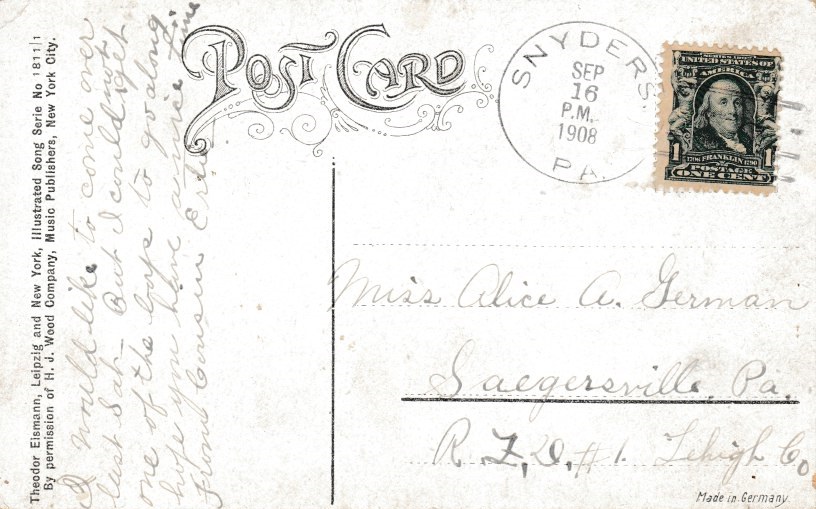 POST CARD
SNYDERS
SEP
16
P.M.
1908
PA.
UNITED STATES OF
AMERICA
1 FRANKLIN 1
POSTAGE
ONE CENT
Theodor Eismann, Leipzig and New York, Illustrated Song Serie No 1811|1
By permission of H. J. Wood Company, Music Publishers, New York City.
I would like to come over
last Sat. But I could not get
one of the boys to go along.
hope you have a nice time
From Cousin
Miss Alice A. German
Saegersville, Pa.
R. F. D. #1. Lehigh Co
Made in Germany